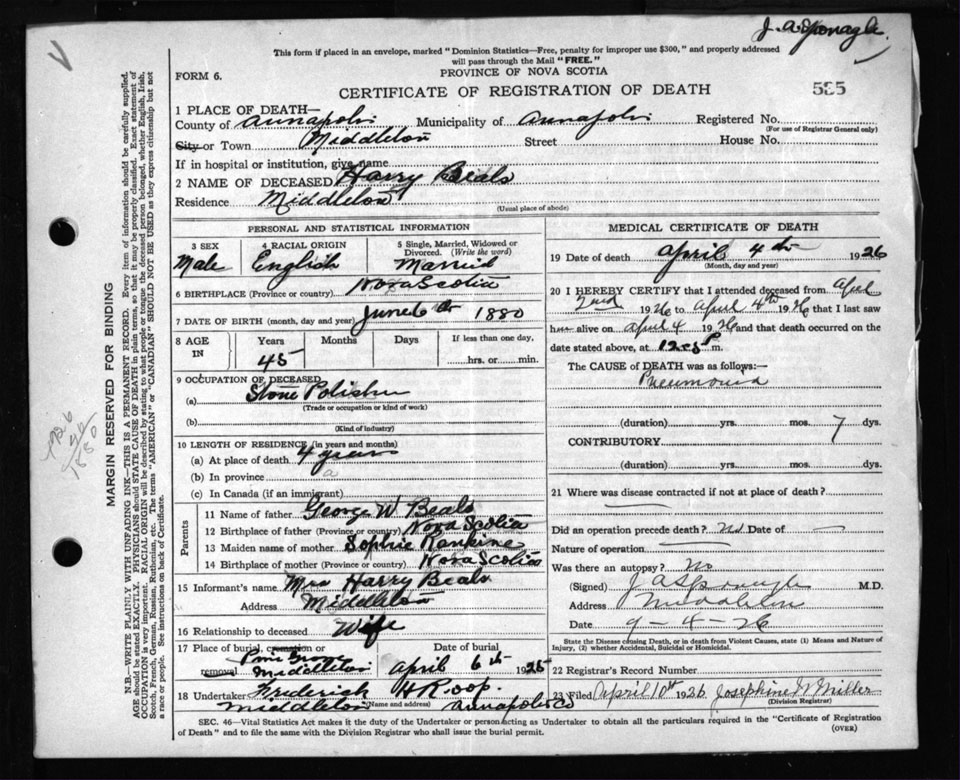 J. A. Sponagle.
This form if placed in an envelope, marked "Dominion Statistics—Free, penalty for improper use $300," and properly addressed
will pass through the Mail "FREE."
PROVINCE OF NOVA SCOTIA
FORM 6.
CERTIFICATE OF REGISTRATION OF DEATH
535
1 PLACE OF DEATH—
County of Annapolis Municipality of Annapolis Registered No.
(For use of Registrar General only)
City or Town Middleton Street House No.
If in hospital or institution, give name
2 NAME OF DECEASED Harry Beals
Residence Middleton
(Usual place of abode)
PERSONAL AND STATISTICAL INFORMATION
3 SEX 4 RACIAL ORIGIN 5 Single, Married, Widowed or
Divorced. (Write the word)
Male English Married
6 BIRTHPLACE (Province or country) Nova Scotia
7 DATE OF BIRTH (month, day and year) June 6th 1880
8 AGE IN Years Months Days If less than one day,
45 hrs. or min.
9 OCCUPATION OF DECEASED
(a) Stone Polisher
(Trade or occupation or kind of work)
(b)
(Kind of industry)
10 LENGTH OF RESIDENCE (in years and months)
(a) At place of death 4 years
(b) In province
(c) In Canada (if an immigrant)
Parents
11 Name of father George W Beals
12 Birthplace of father (Province or country) Nova Scotia
13 Maiden name of mother Sophie Rankine
14 Birthplace of mother (Province or country) Nova Scotia
15 Informant's name Mrs Harry Beals
Address Middleton
16 Relationship to deceased Wife
17 Place of burial, cremation or removal Date of burial
Pine Grove
Middleton April 6th 1926
18 Undertaker Frederick H Roop.
Middleton (Name and address) Annapolis Co
MEDICAL CERTIFICATE OF DEATH
19 Date of death April 4th 1926
(Month, day and year)
20 I HEREBY CERTIFY that I attended deceased from April
2nd 1926 to April 4th 1926 that I last saw
him alive on April 4 1926 and that death occurred on the
date stated above, at m.
The CAUSE of DEATH was as follows:—
Pneumonia
(duration) yrs. mos. 7 dys.
CONTRIBUTORY
(duration) yrs. mos. dys.
21 Where was disease contracted if not at place of death?
Did an operation precede death? No Date of
Nature of operation
Was there an autopsy? No
(Signed) J A Sponagle M.D.
Address Middleton
Date 9-4-26
State the Disease causing Death, or in death from Violent Causes, state (1) Means and Nature of
Injury, (2) whether Accidental, Suicidal or Homicidal.
22 Registrar's Record Number
23 Filed April 10th 1926 Josephine W Miller
(Division Registrar)
SEC. 46—Vital Statistics Act makes it the duty of the Undertaker or person acting as Undertaker to obtain all the particulars required in the "Certificate of Registration
of Death" and to file the same with the Division Registrar who shall issue the burial permit.
(OVER)
MARGIN RESERVED FOR BINDING
N.B.—WRITE PLAINLY WITH UNFADING INK—THIS IS A PERMANENT RECORD. Every item of information should be carefully supplied.
AGE should be stated EXACTLY. PHYSICIANS should STATE CAUSE OF DEATH in plain terms, so that it may be properly classified. Exact statement of
OCCUPATION is very important. RACIAL ORIGIN will be described by stating to what people or tongue the deceased person belonged, whether English, Irish,
Scotch, French, German, Russian, Ruthenian, etc. The terms "AMERICAN" or "CANADIAN" SHOULD NOT BE USED as they express citizenship but not
a race or people. See instructions on back of Certificate.
1926
46
1880